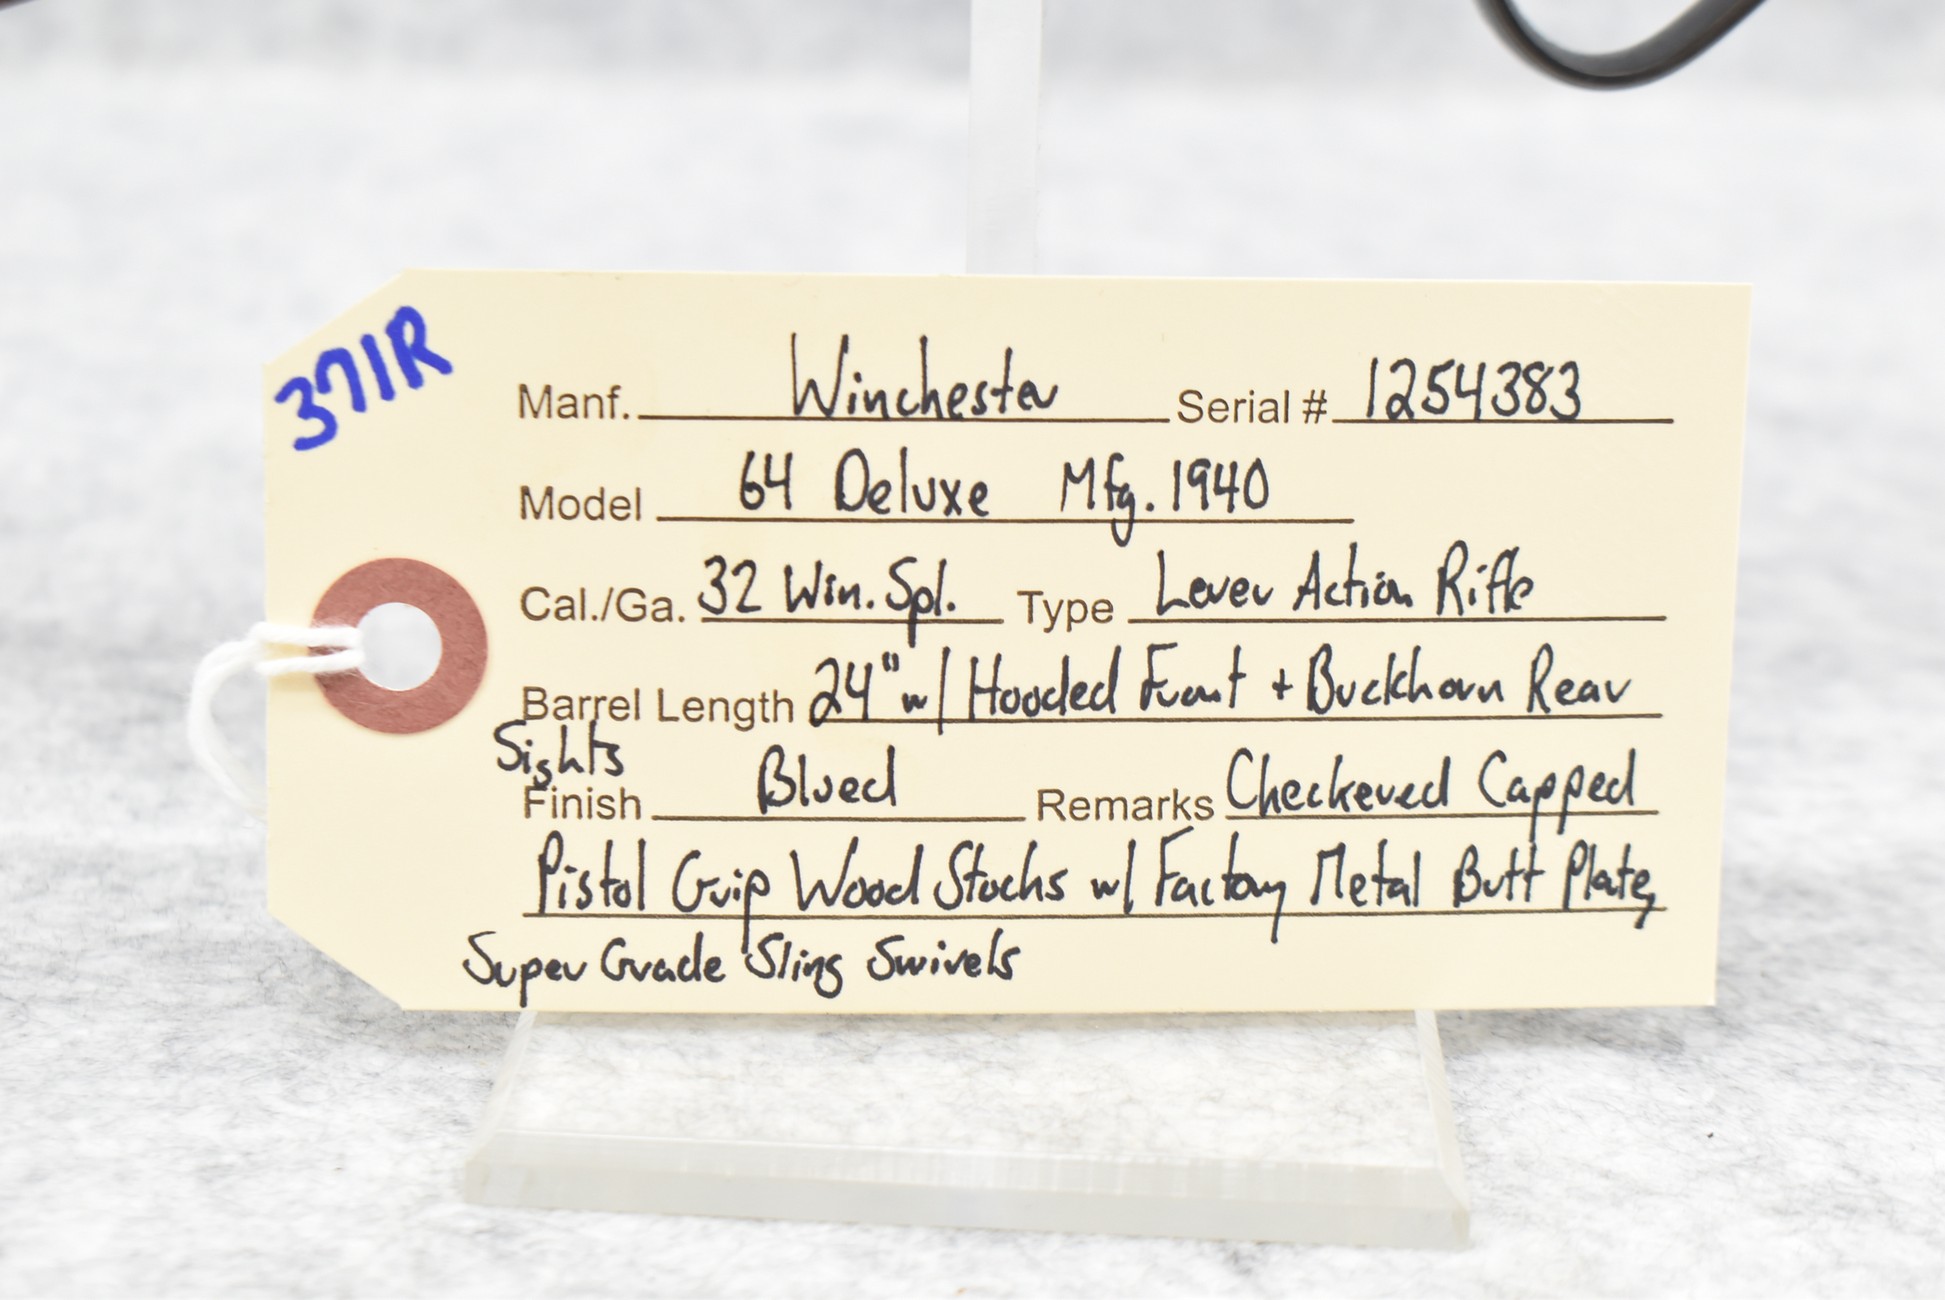 371R
Manf. Winchester Serial # 1254383
Model 64 Deluxe Mfg. 1940
Cal./Ga. 32 Win. Spl. Type Lever Action Rifle
Barrel Length 24" w/ Hooded Front + Buckhorn Rear
Sights
Finish Blued Remarks Checkered Capped
Pistol Grip Wood Stocks w/ Factory Metal Butt Plate,
Super Grade Sling Swivels